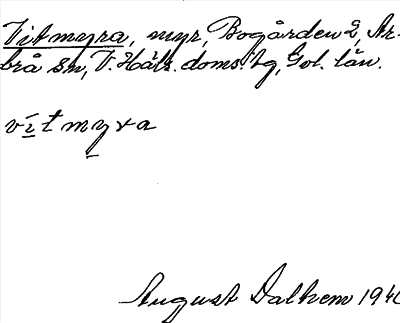 Vitmyra, myr, Bogården 2, Ar-
brå sn, V. Häls. doms. tg, Gvl. län.
vitmyra
August Dalhem 1940